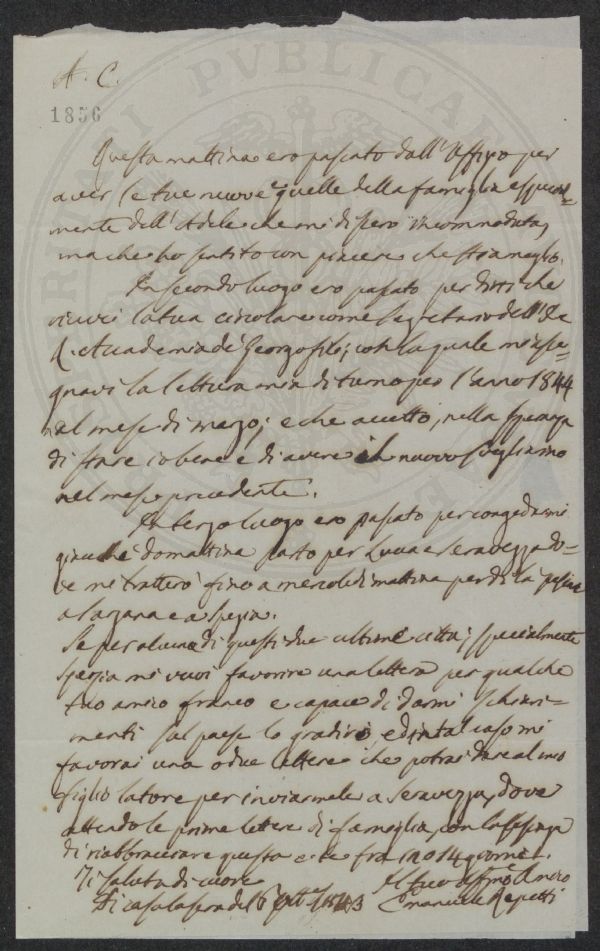 A. C.
1856
Questa mattina ero passato dall'Uffizo per
aver le tue nuove e quelle della famiglia special-
mente dell'Adele che mi dissero incommodata,
ma che ho sentito con piacere che stia meglio.
In secondo luogo ero passato per dirti che
ricevei la tua circolare come Segretario dell'I. e
R. Accademia de' Georgofili, con la quale mi asse-
gnavi la lettura mia di turno per l'anno 1844
nel mese di marzo; e che accetto, nella speranza
di stare io bene e di avere il nuovo
nel mese precedente.
In terzo luogo ero passato per congedarmi
giacché domattina parto per Lucca e Seravezza do-
ve mi tratterò fino a mercoledì mattina per di là passare
a Sarzana e a Spezia.
Se per alcuna di queste due ultime città, specialmente
Spezia mi vuoi favorire una lettera per qualche
tuo amico franco e capace di darmi schiari-
menti sul paese lo gradirò ed in tal caso mi
favorai una o due lettere che potrai dare al mio
figlio latore per inviarmele a Seravezza, dove
attendo le prime lettere di famiglia, con la speranza
di riabbracciare questa e te fra 12 o 14 giorni.
Ti saluto di cuore
Di casa la sera del 6 1843
Il tuo affmo Amico
Emanuele Repetti